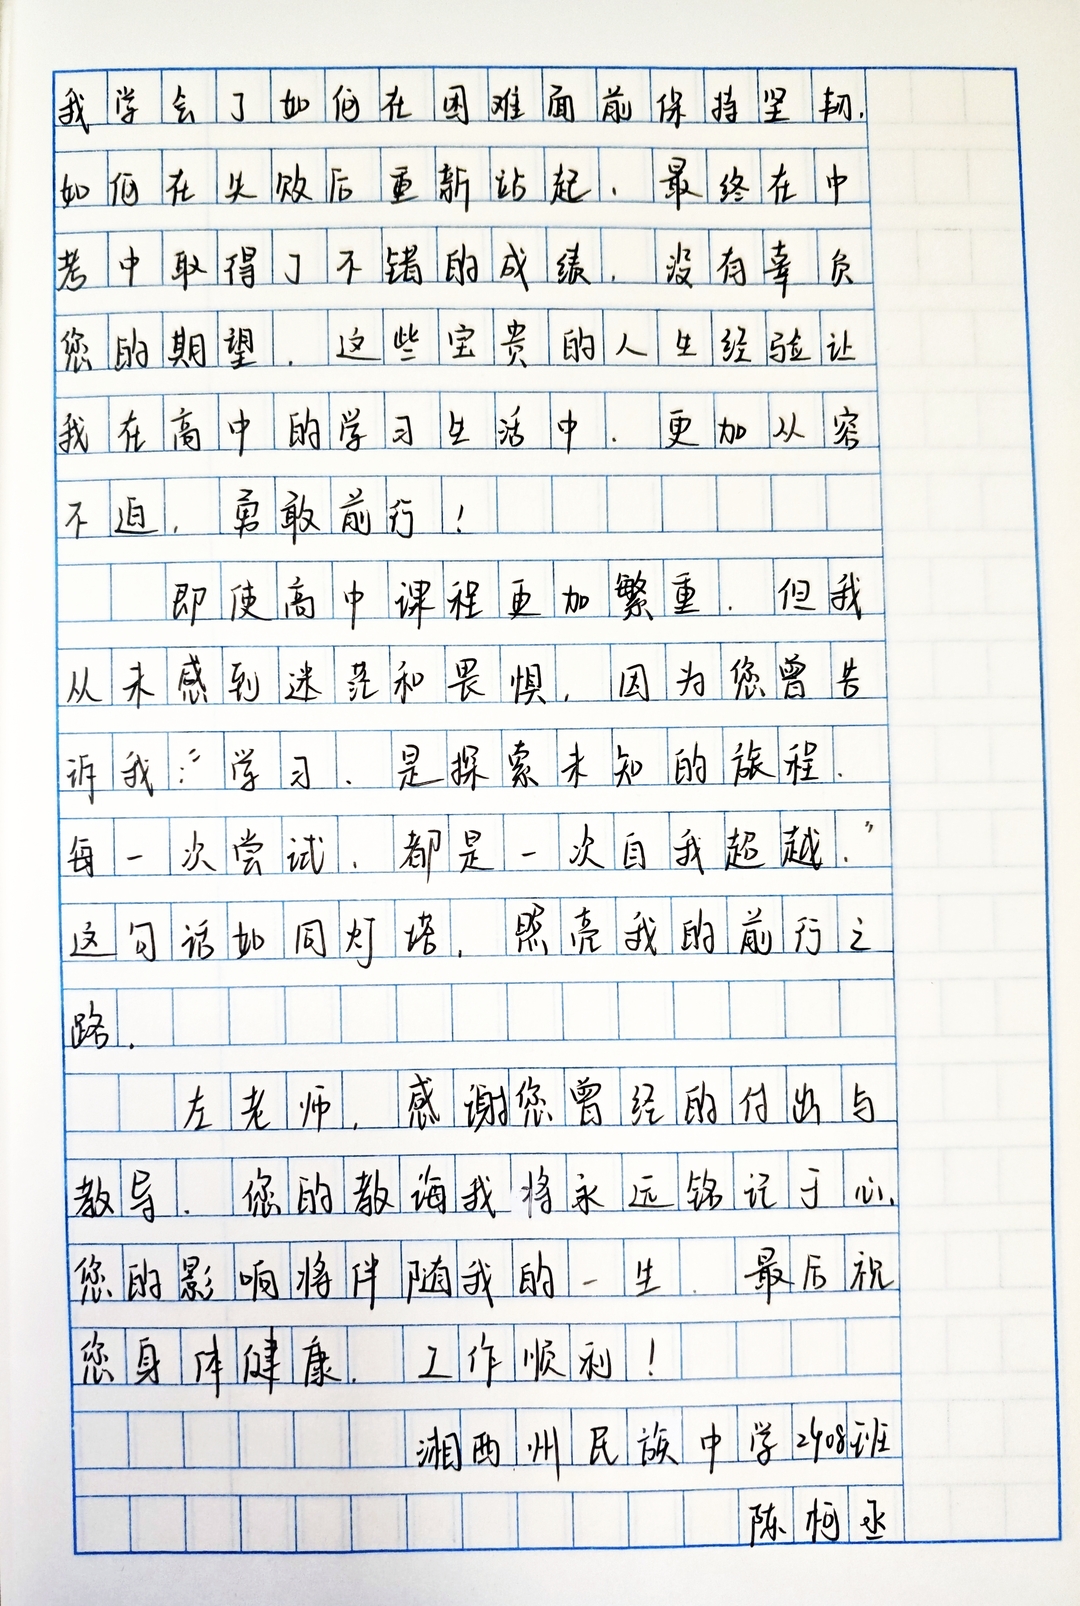 我学会了如何在困难面前保持坚韧，
如何在失败后重新站起，最终在中
考中取得了不错的成绩，没有辜负
您的期望．这些宝贵的人生经验让
我在高中的学习生活中，更加从容
不迫，勇敢前行！
即使高中课程更加繁重，但我
从未感到迷茫和畏惧，因为您曾告
诉我："学习，是探索未知的旅程，
每一次尝试，都是一次自我超越．"
这句话如同灯塔，照亮我的前行之
路．
左老师，感谢您曾经的付出与
教导．您的教诲我将永远铭记于心，
您的影响将伴随我的一生．最后祝
您身体健康，工作顺利！
湘西州民族中学2408班
陈柯丞